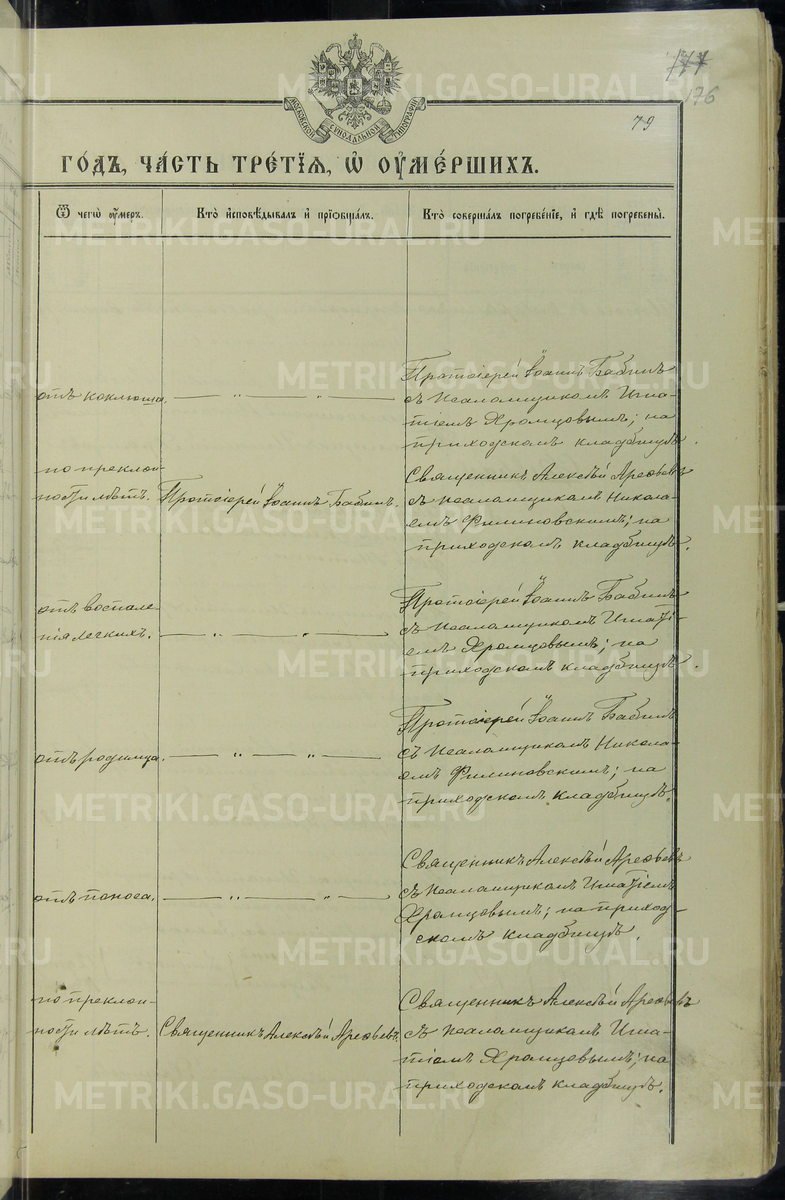 177
176
79
МОСКОВСКОЙ СѴНОДАЛЬНОЙ ТИПОГРАФІИ
ГО́ДЪ, ЧА́СТЬ ТРЕ́ТІѦ, Ѡ҆ ОУ҆МЕ́РШИХЪ.
Ѿ чегѡ̀ оу҆́меръ.
Кто̀ и҆сповѣ́дывалъ и҆ прїѡбща́лъ.
Кто̀ соверша́лъ погребе́нїе, и҆ гдѣ̀ погребены̀.
отъ коклюша.
— " — " —
Протоіерей Іоаннъ Бабинъ
съ псаломщикомъ Игна-
тіемъ Хромцовымъ; на
приходскомъ кладбищѣ.
по преклон-
ности лѣтъ.
Протоіерей Іоаннъ Бабинъ.
Священникъ Алексѣй Арефьевъ
съ псаломщикомъ Никола-
емъ Филиновскимъ; на
приходскомъ кладбищѣ.
отъ воспале-
нія легкихъ.
— " — " —
Протоіерей Іоаннъ Бабинъ
съ псаломщикомъ Игнаті-
емъ Хромцовымъ; на
приходскомъ кладбищѣ.
отъ родимца.
— " — " —
Протоіерей Іоаннъ Бабинъ
съ псаломщикомъ Никола-
емъ Филиновскимъ; на
приходскомъ кладбищѣ.
отъ поноса.
— " — " —
Священникъ Алексѣй Арефьевъ
съ псаломщикомъ Игнатіемъ
Хромцовымъ; на приход-
скомъ кладбищѣ.
по преклон-
ности лѣтъ.
Священникъ Алексѣй Арефьевъ.
Священникъ Алексѣй Арефьевъ
съ псаломщикомъ Игна-
тіемъ Хромцовымъ; на
приходскомъ кладбищѣ.
METRIKI.GASO-URAL.RU